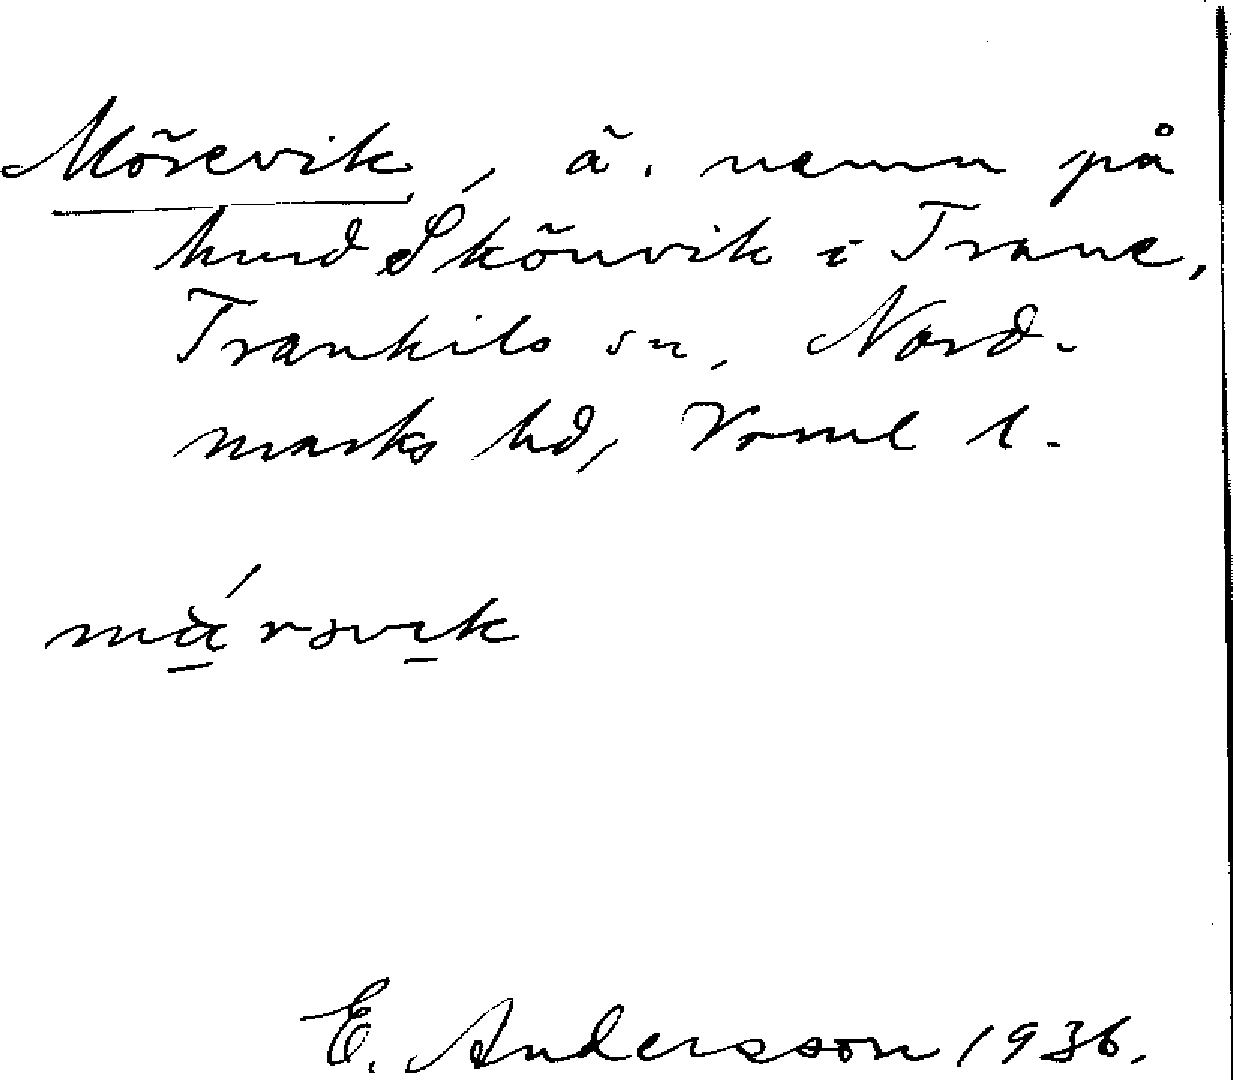 Mörevik, ä. namn på
hmd Skönvik i Trane,
Trankils sn, Nord-
marks hd, Vrml l.
mä́rəvik
E. Andersson 1936.